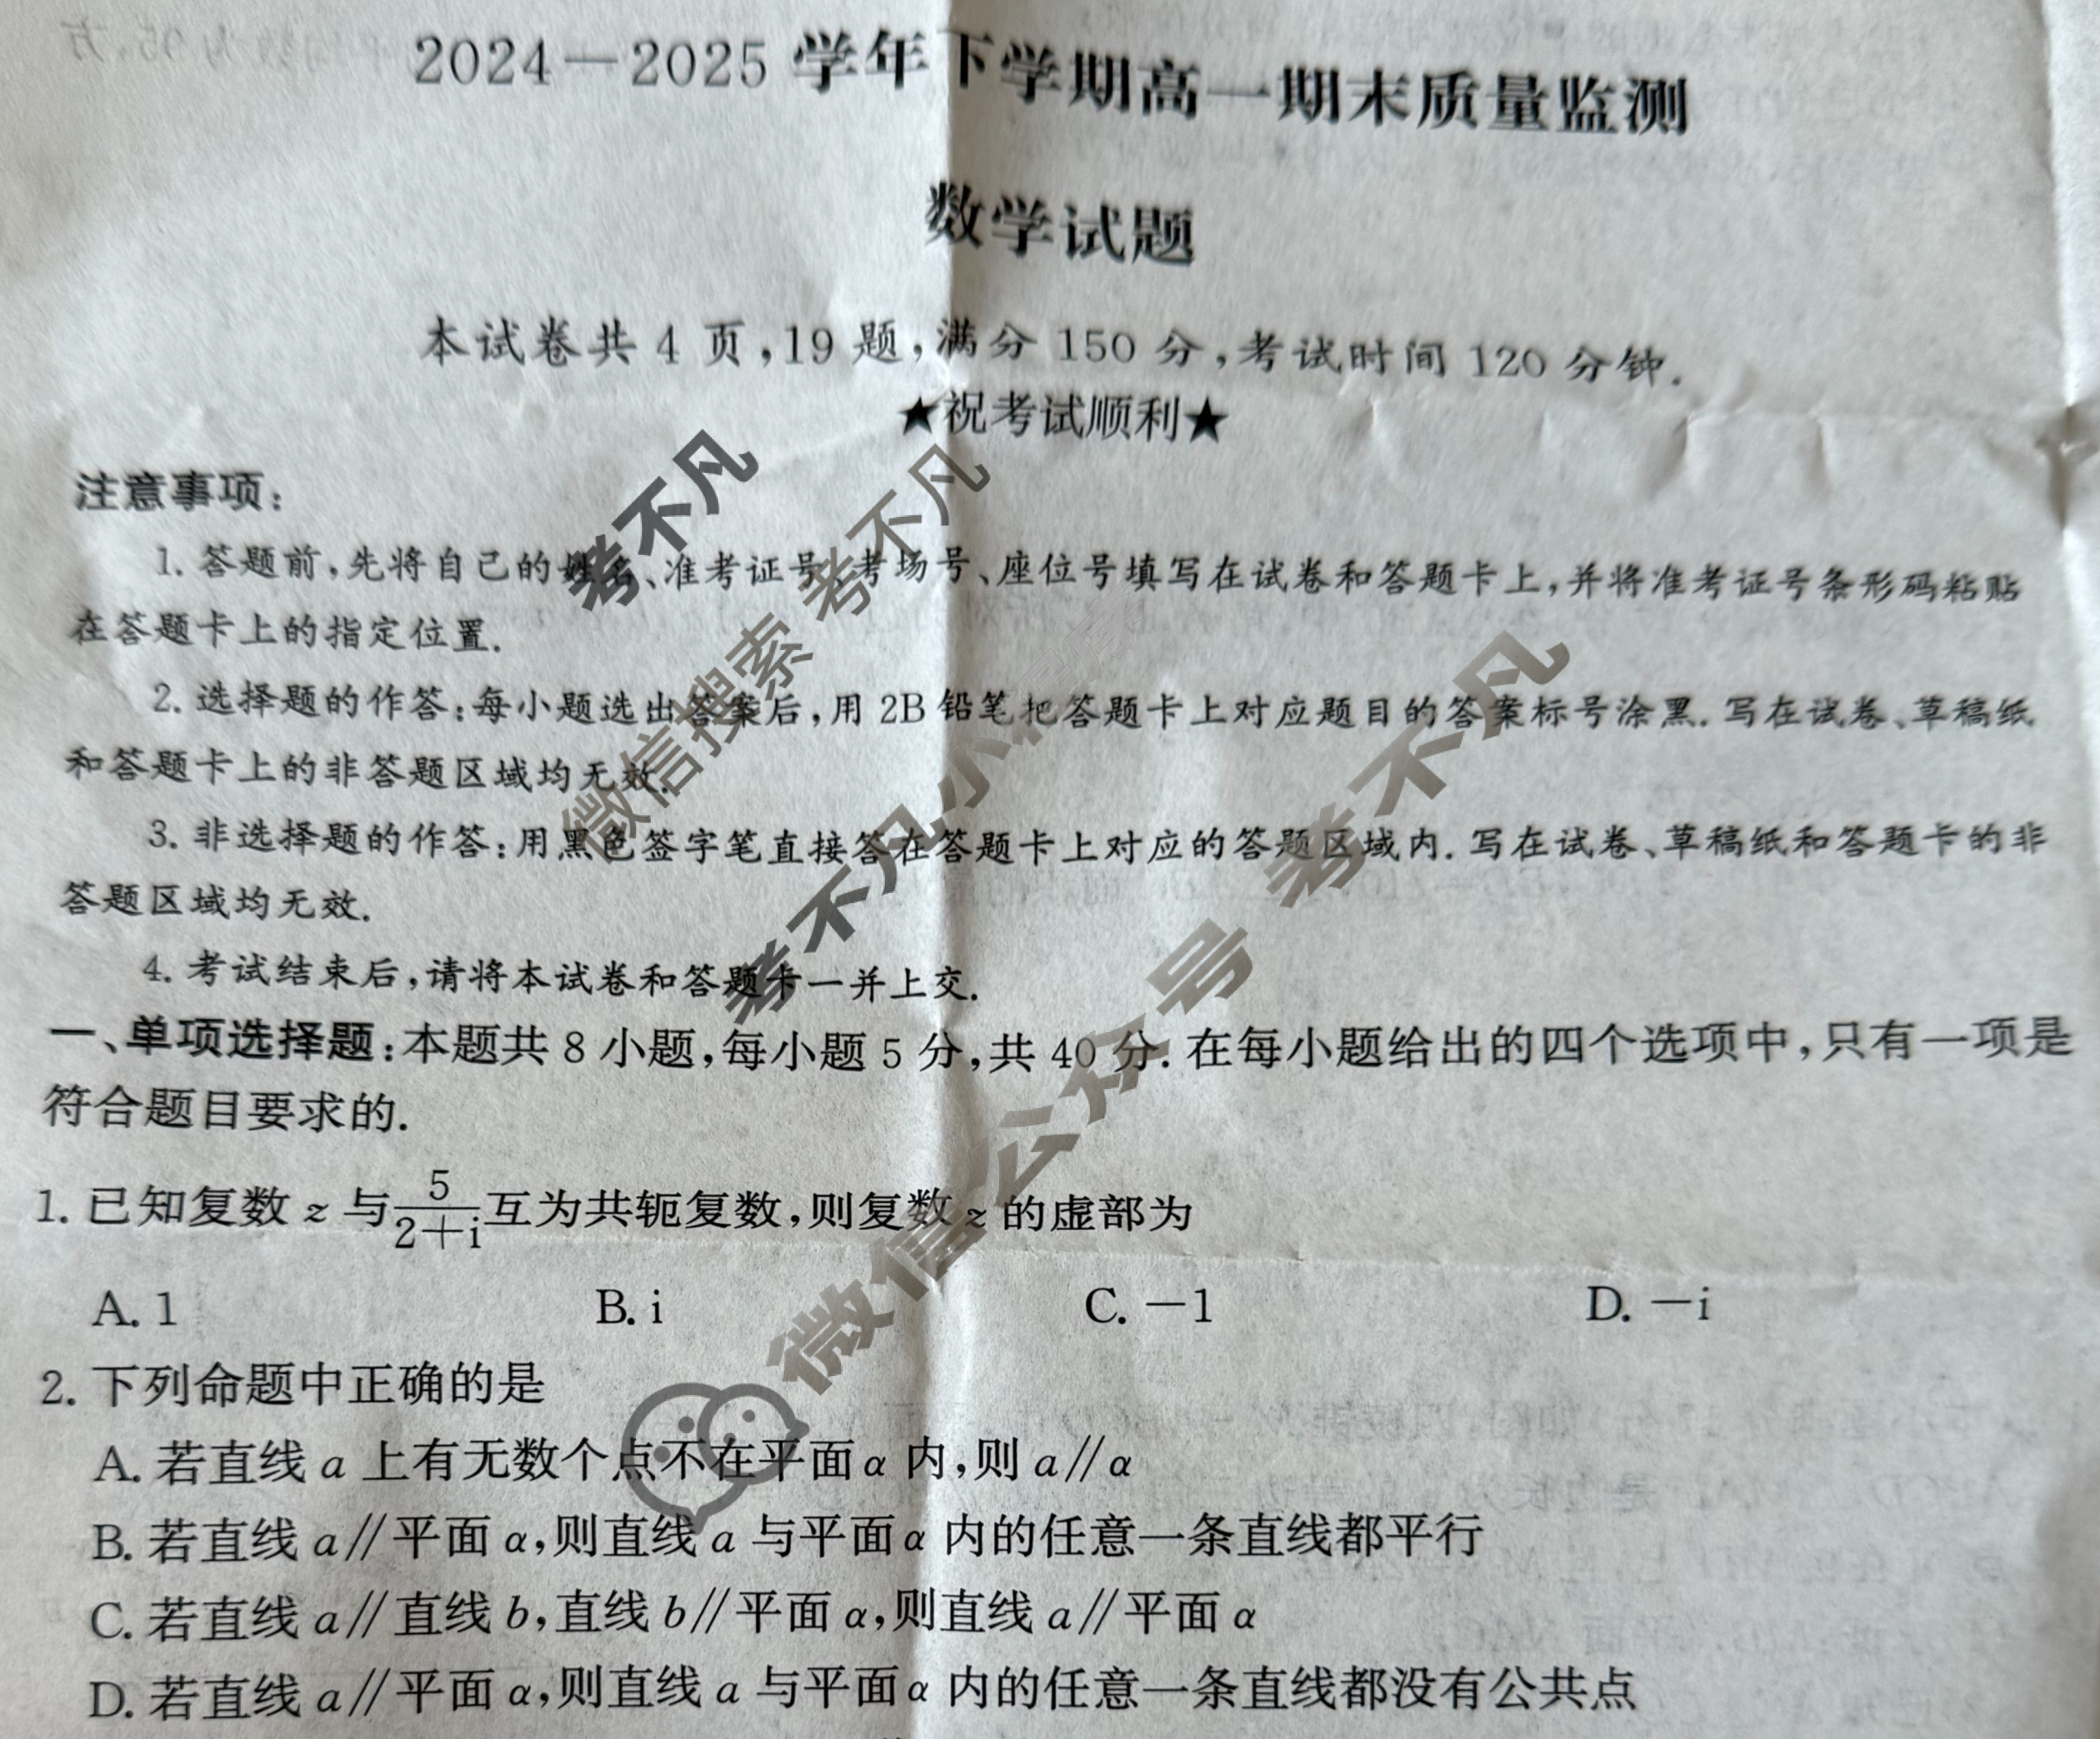 2024—2025 学年下学期高一期末质量监测
数学试题
本试卷共 4 页,19 题,满分 150 分,考试时间 120 分钟.
★祝考试顺利★
注意事项:
1. 答题前,先将自己的姓名、准考证号、考场号、座位号填写在试卷和答题卡上,并将准考证号条形码粘贴
在答题卡上的指定位置.
2. 选择题的作答:每小题选出答案后,用 2B 铅笔把答题卡上对应题目的答案标号涂黑. 写在试卷、草稿纸
和答题卡上的非答题区域均无效.
3. 非选择题的作答:用黑色签字笔直接答在答题卡上对应的答题区域内. 写在试卷、草稿纸和答题卡的非
答题区域均无效.
4. 考试结束后,请将本试卷和答题卡一并上交.
一、单项选择题:本题共 8 小题,每小题 5 分,共 40 分. 在每小题给出的四个选项中,只有一项是
符合题目要求的.
1. 已知复数 z 与 5/(2+i) 互为共轭复数,则复数 z 的虚部为
A. 1 B. i C. －1 D. －i
2. 下列命题中正确的是
A. 若直线 a 上有无数个点不在平面 α 内,则 a∥α
B. 若直线 a∥平面 α,则直线 a 与平面 α 内的任意一条直线都平行
C. 若直线 a∥直线 b,直线 b∥平面 α,则直线 a∥平面 α
D. 若直线 a∥平面 α,则直线 a 与平面 α 内的任意一条直线都没有公共点
考不凡
微信搜索 考不凡
考不凡小
微信公众号 考不凡